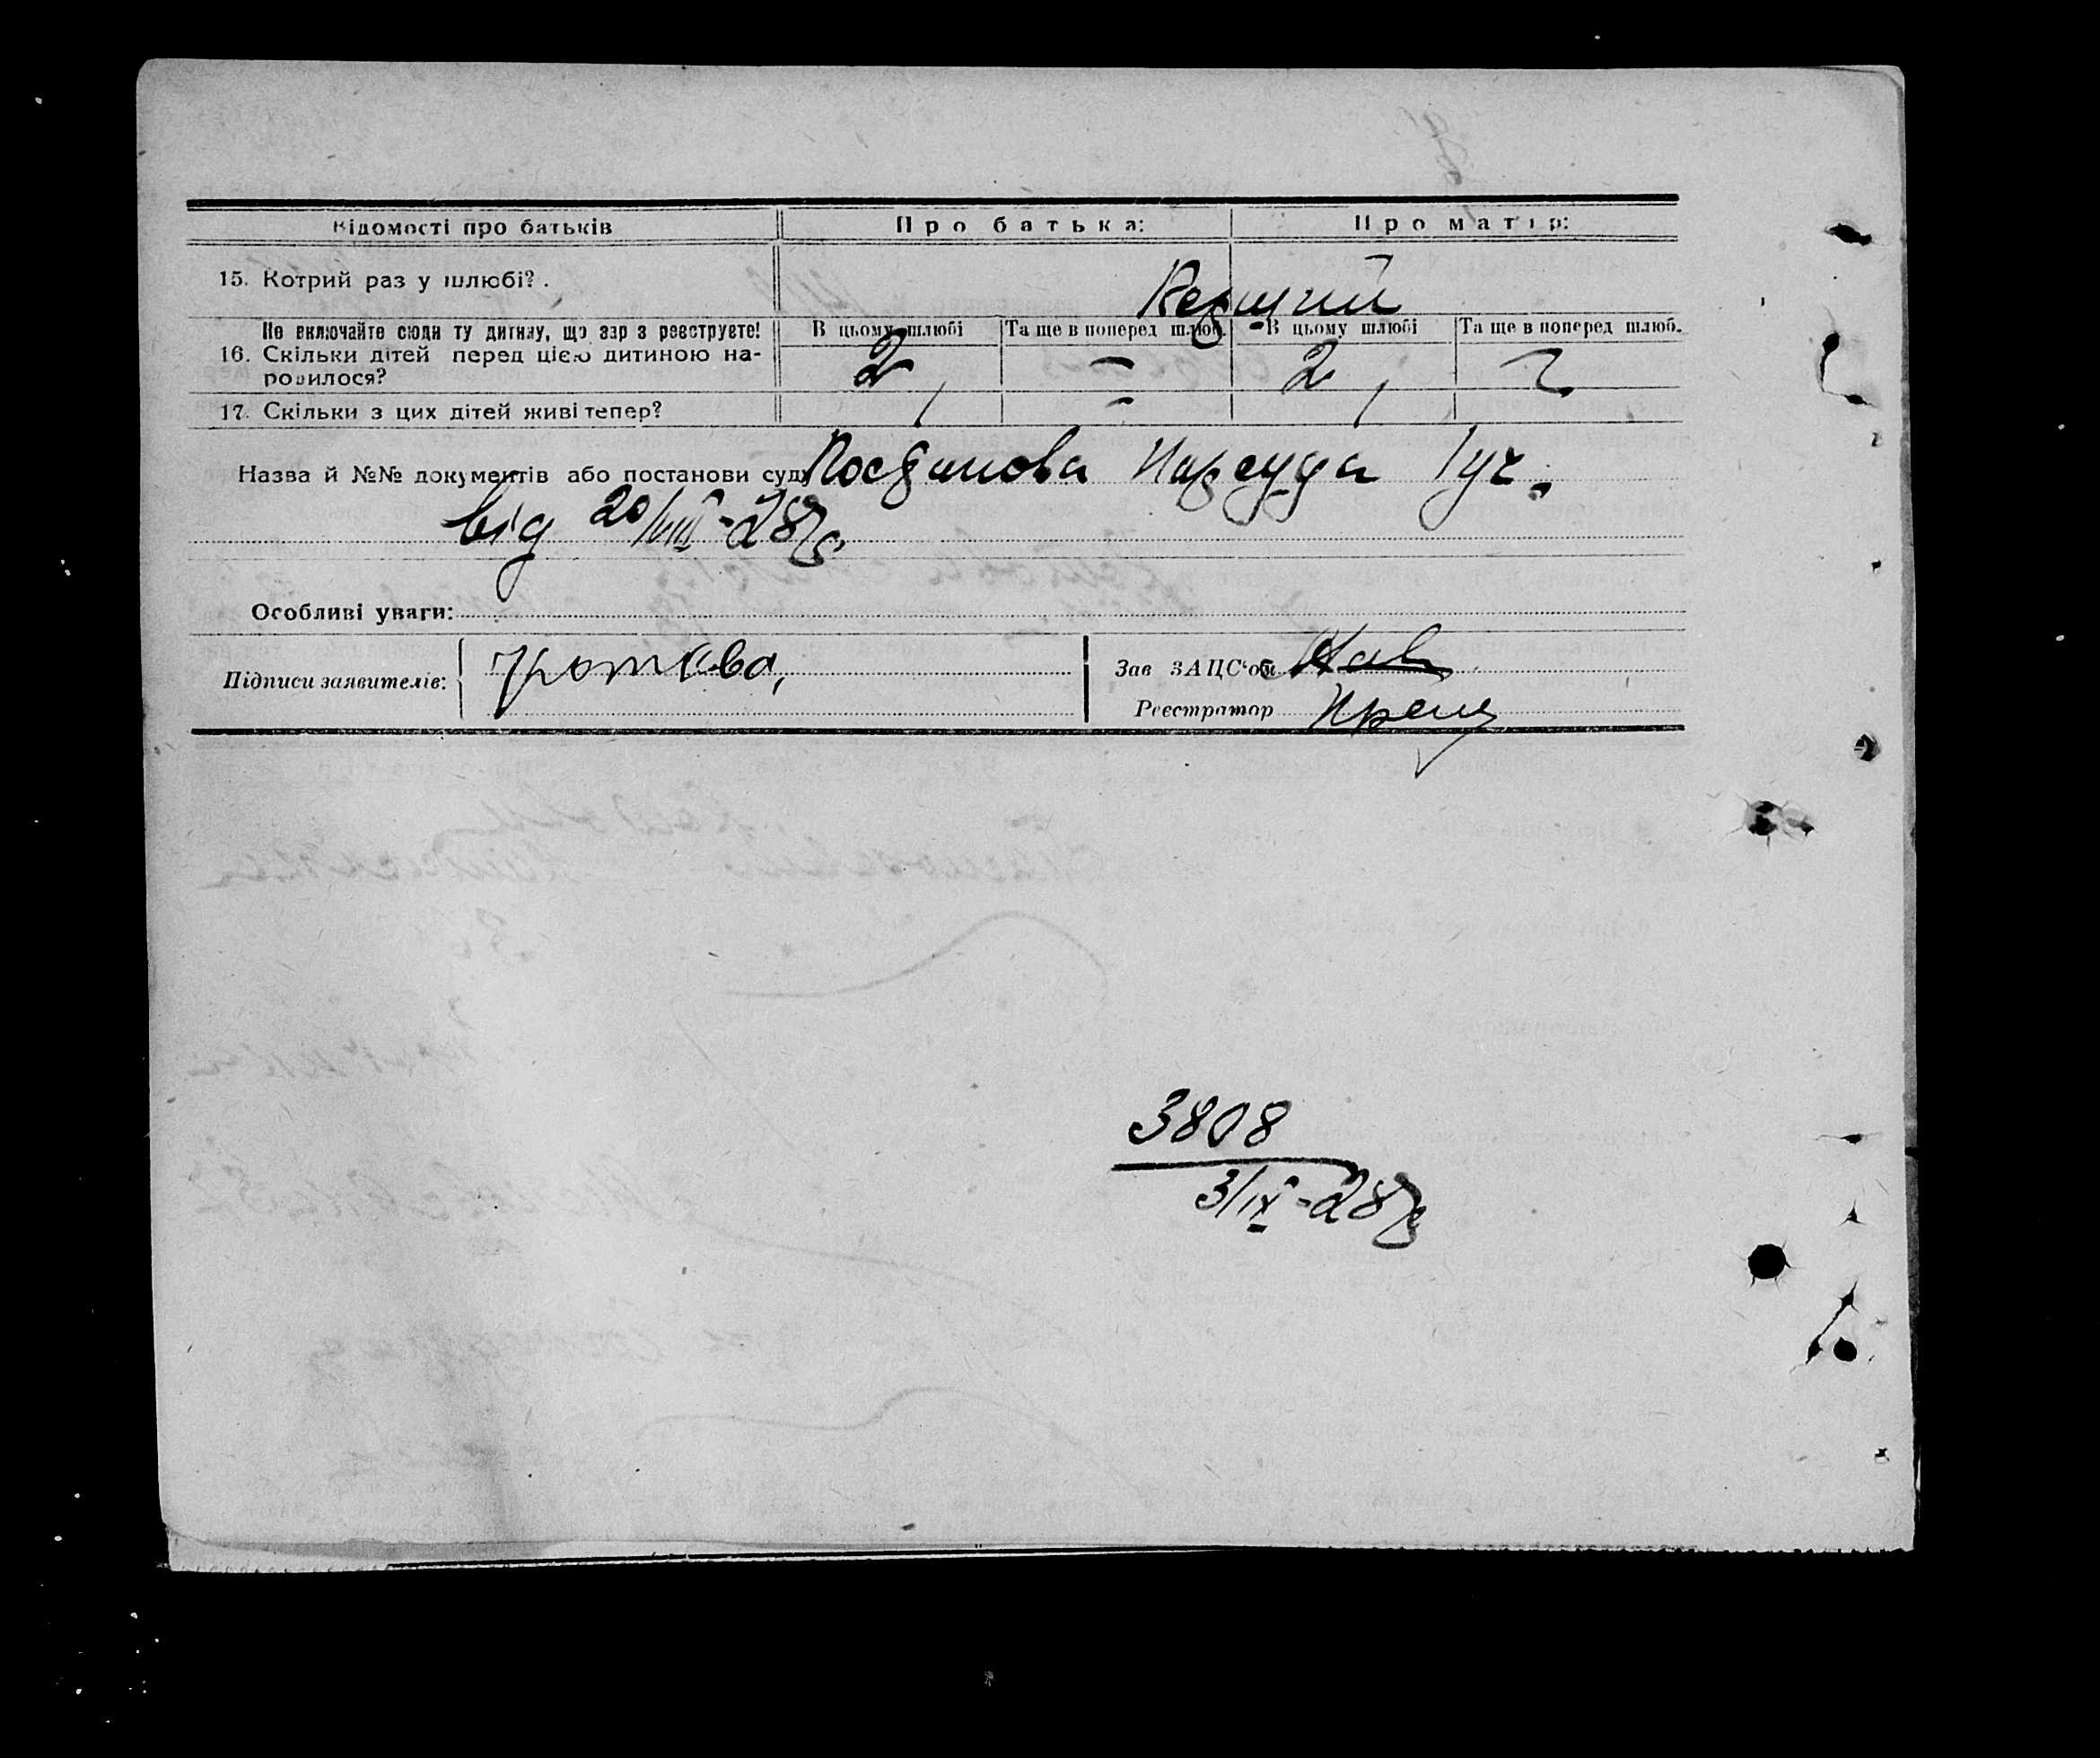 Відомості про батьків Про батька: Про матір:
15. Котрий раз у шлюбі?.
Не включайте сюди ту дитину, що зараз реєструєте! В цьому шлюбі Та ще в поперед шлюб. В цьому шлюбі Та ще в поперед шлюб.
16. Скільки дітей перед цією дитиною на- 2 — 2
родилося?
17. Скільки з цих дітей живі тепер? 1 — 1
Назва й №№ документів або постанови суду Постанова Нарсуда 1 уч.
від 20/VIII-28 р.
Особливі уваги:
Підписи заявителів: Зав ЗАЦС'ом
Реєстратор
3808
3/IX-28 р